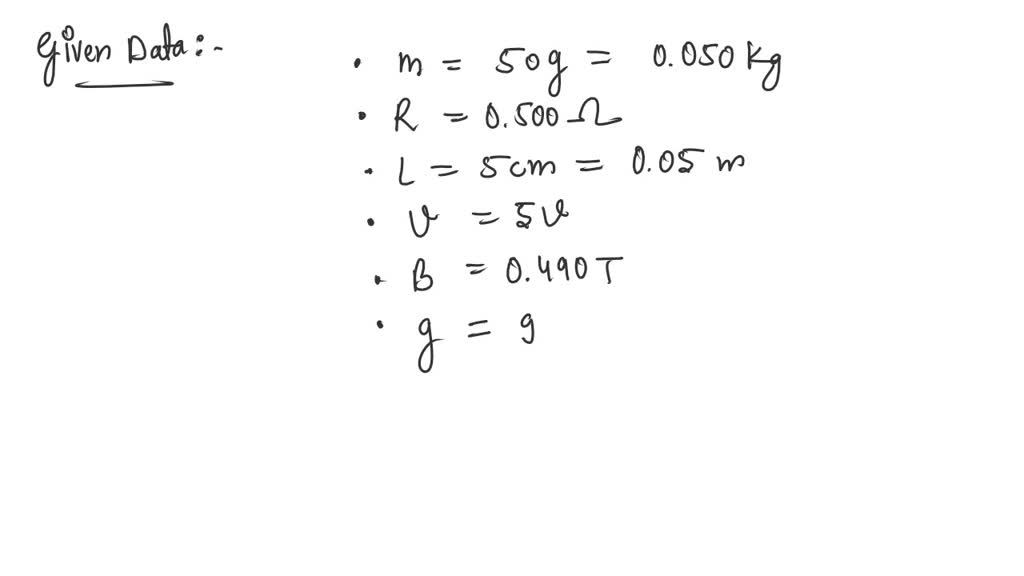 Given Data:-
• m = 50g = 0.050 kg
• R = 0.500 Ω
• L = 5cm = 0.05 m
• V = 5V
• B = 0.490 T
• g = 9